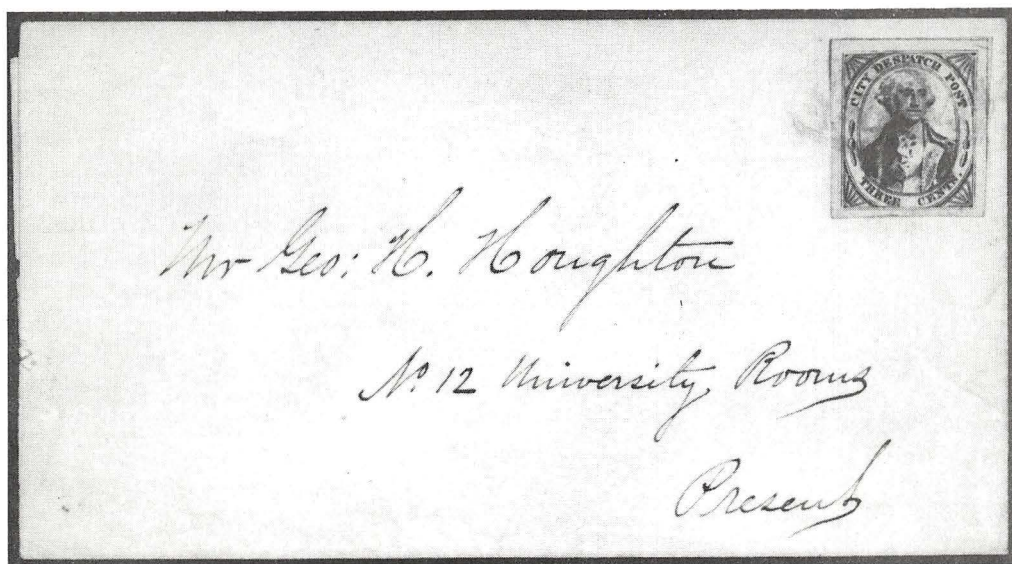 CITY DESPATCH POST
THREE CENTS.
Mr Geo: H. Houghton
No. 12 University, Rooms
Present